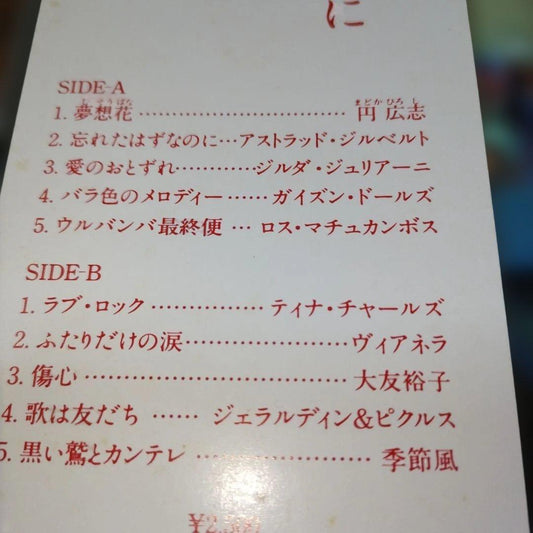 に
SIDE-A
むそうばな まどか ひろ し
1. 夢想花 …………………………… 円 広志
2. 忘れたはずなのに…アストラッド・ジルベルト
3. 愛のおとずれ…………ジルダ・ジュリアーニ
4. バラ色のメロディー…… ガイズン・ドールズ
5. ウルバンバ最終便 … ロス・マチュカンボス
SIDE-B
1. ラブ・ロック …………… ティナ・チャールズ
2. ふたりだけの涙…………………ヴィアネラ
3. 傷心 ……………………………… 大友裕子
4. 歌は友だち …… ジェラルディン&ピクルス
5. 黒い鷲とカンテレ ………………… 季節風